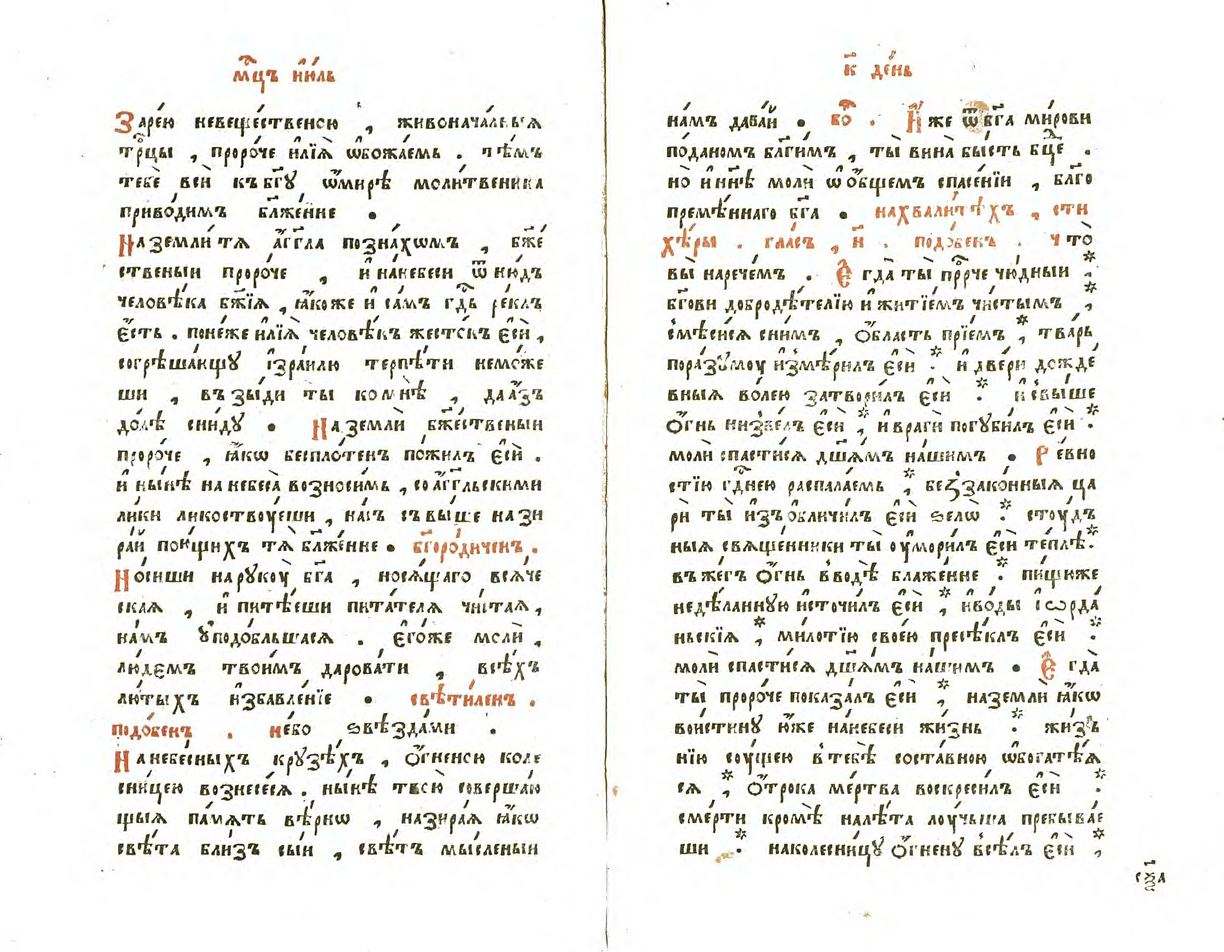 мц҃ъ и҆ю́ль
Заре́ю невеще́ственною , живонача́льныѧ
трⷪ҇цы , проро́че и҆лїѧ̀ ѡ҆божа́емь . тѣ́мъ
тебѐ всѝ къ бг҃ꙋ ѿмирѣ̀ моли́твенника
приво́димъ бл҃же́нне .
Наземлѝ тѧ̀ а҆́гг҃ла позна́хомъ , бж҃е́
ственыи проро́че , и҆нанебесѝ ѿню́дъ
человѣ́ка бж҃їѧ , ꙗ҆́коже и҆са́мъ гдⷭ҇ь ре́клъ
є҆́сть . поне́же и҆лїѧ̀ человѣ́къ жесто́къ є҆сѝ ,
согрѣша́ющꙋ і҆зра́илю терпѣ́ти немо́же
ши , възы́ди ты̀ комнѣ̀ , даа҆́зъ
до́лѣ сни́дꙋ . Наземлѝ бж҃е́ственыи
проро́че , ꙗ҆́кѡ беспло́тенъ пожи́лъ є҆сѝ .
и҆ ны́нѣ на небеса̀ возноси́мь , соа҆́гг҃льскими
ли́ки ликоствꙋ́еши , на́съ съвы́ше нази
ра́й пою́щихъ тѧ̀ бл҃же́нне . бг҃оро́диченъ .
Но́сиши нарꙋкоꙋ̀ бг҃а , носѧ́щаго всѧ́че
скаѧ , и҆ пита́еши пита́телѧ чи́стаѧ ,
на́мъ ᲂу҆подо́бльшасѧ . є҆го́же молѝ ,
лю́демъ твои́мъ дарова́ти , всѣ́хъ
лю́тыхъ и҆збавле́нїе . свѣти́ленъ .
подо́бенъ . не́бо ѕвѣзда́ми .
Нанебе́сныхъ крꙋзѣ́хъ , ѻ҆́гненою коле
сни́цею вознесе́сѧ . ны́нѣ твою̀ соверша́ю
щыѧ па́мѧть вѣ́рнѡ , назира́ѧ ꙗ҆́кѡ
свѣ́та бли́зъ сы́и , свѣ́тъ мы́сленыи
к҃ де́нь
на́мъ дава́й . бо . И҆́же ѿ бг҃а ми́рови
по́даномъ бл҃ги́мъ , ты̀ вина̀ бы́сть бцⷣе .
но и҆ нн҃ѣ молѝ ѡ҆ ѻ҆́бщемъ спасе́нїи , бл҃го
преме́ннаго бг҃а . нахвали́тѣхъ , сти
хѣ́ры . гла́съ , и҃ . подо́бенъ . что̀
вы̀ нарече́мъ . Є҆гда̀ ты̀ прⷪ҇ро́че чю́дныи *
бг҃ови добродѣ́телїю и҆ житїе́мъ чи́стымъ , *
смѣси́сѧ сни́мъ , ѻ҆́бласть прїе́мъ * тва́рь
пора́зꙋмоу и҆змѣ́рилъ є҆сѝ * . и҆ две́ри дожде
вны́ѧ во́лею затвори́лъ є҆сѝ * . и҆ свы́ше
ѻ҆́гнь низве́лъ є҆сѝ , * и҆ врагѝ погꙋби́лъ є҆сѝ . *
молѝ спасти́сѧ дш҃а́мъ на́шимъ . Ре́вно
стїю гдⷭ҇нею распала́емь , * беззако́нныѧ ца
рѝ ты̀ и҆зъѻбличи́лъ є҆сѝ ѕелѡ̀ * . стоу́дъ
ныѧ свѧще́нники ты̀ оу҆мори́лъ є҆сѝ те́плѣ . *
въже́гъ ѻ҆́гнь вводѣ̀ блаже́нне * . пи́щꙋже
недѣ́ланнꙋю и҆сточи́лъ є҆сѝ , * и҆во́ды і҆ѡрда́
ньскїѧ , * ми́лотїю свое́ю пресѣ́клъ є҆сѝ * .
молѝ спасти́сѧ дш҃а́мъ на́шимъ . Є҆ гда̀
ты̀ проро́че показа́лъ є҆сѝ , * наземлѝ ꙗ҆́кѡ
вои́стинꙋ ю҆́же нанебесѝ жи́знь * . жи́з
нїю соу́щею втебѣ̀ соста́вною ѡ҆богатѣ́ѧ
сѧ , * ѻ҆́трока ме́ртва воскреси́лъ є҆сѝ * .
сме́рти кро́мѣ налѣ́та лоу́чьша пребыва́е
ши * . наколесни́цꙋ ѻ҆́гненꙋ всѣ́лъ є҆сѝ , *